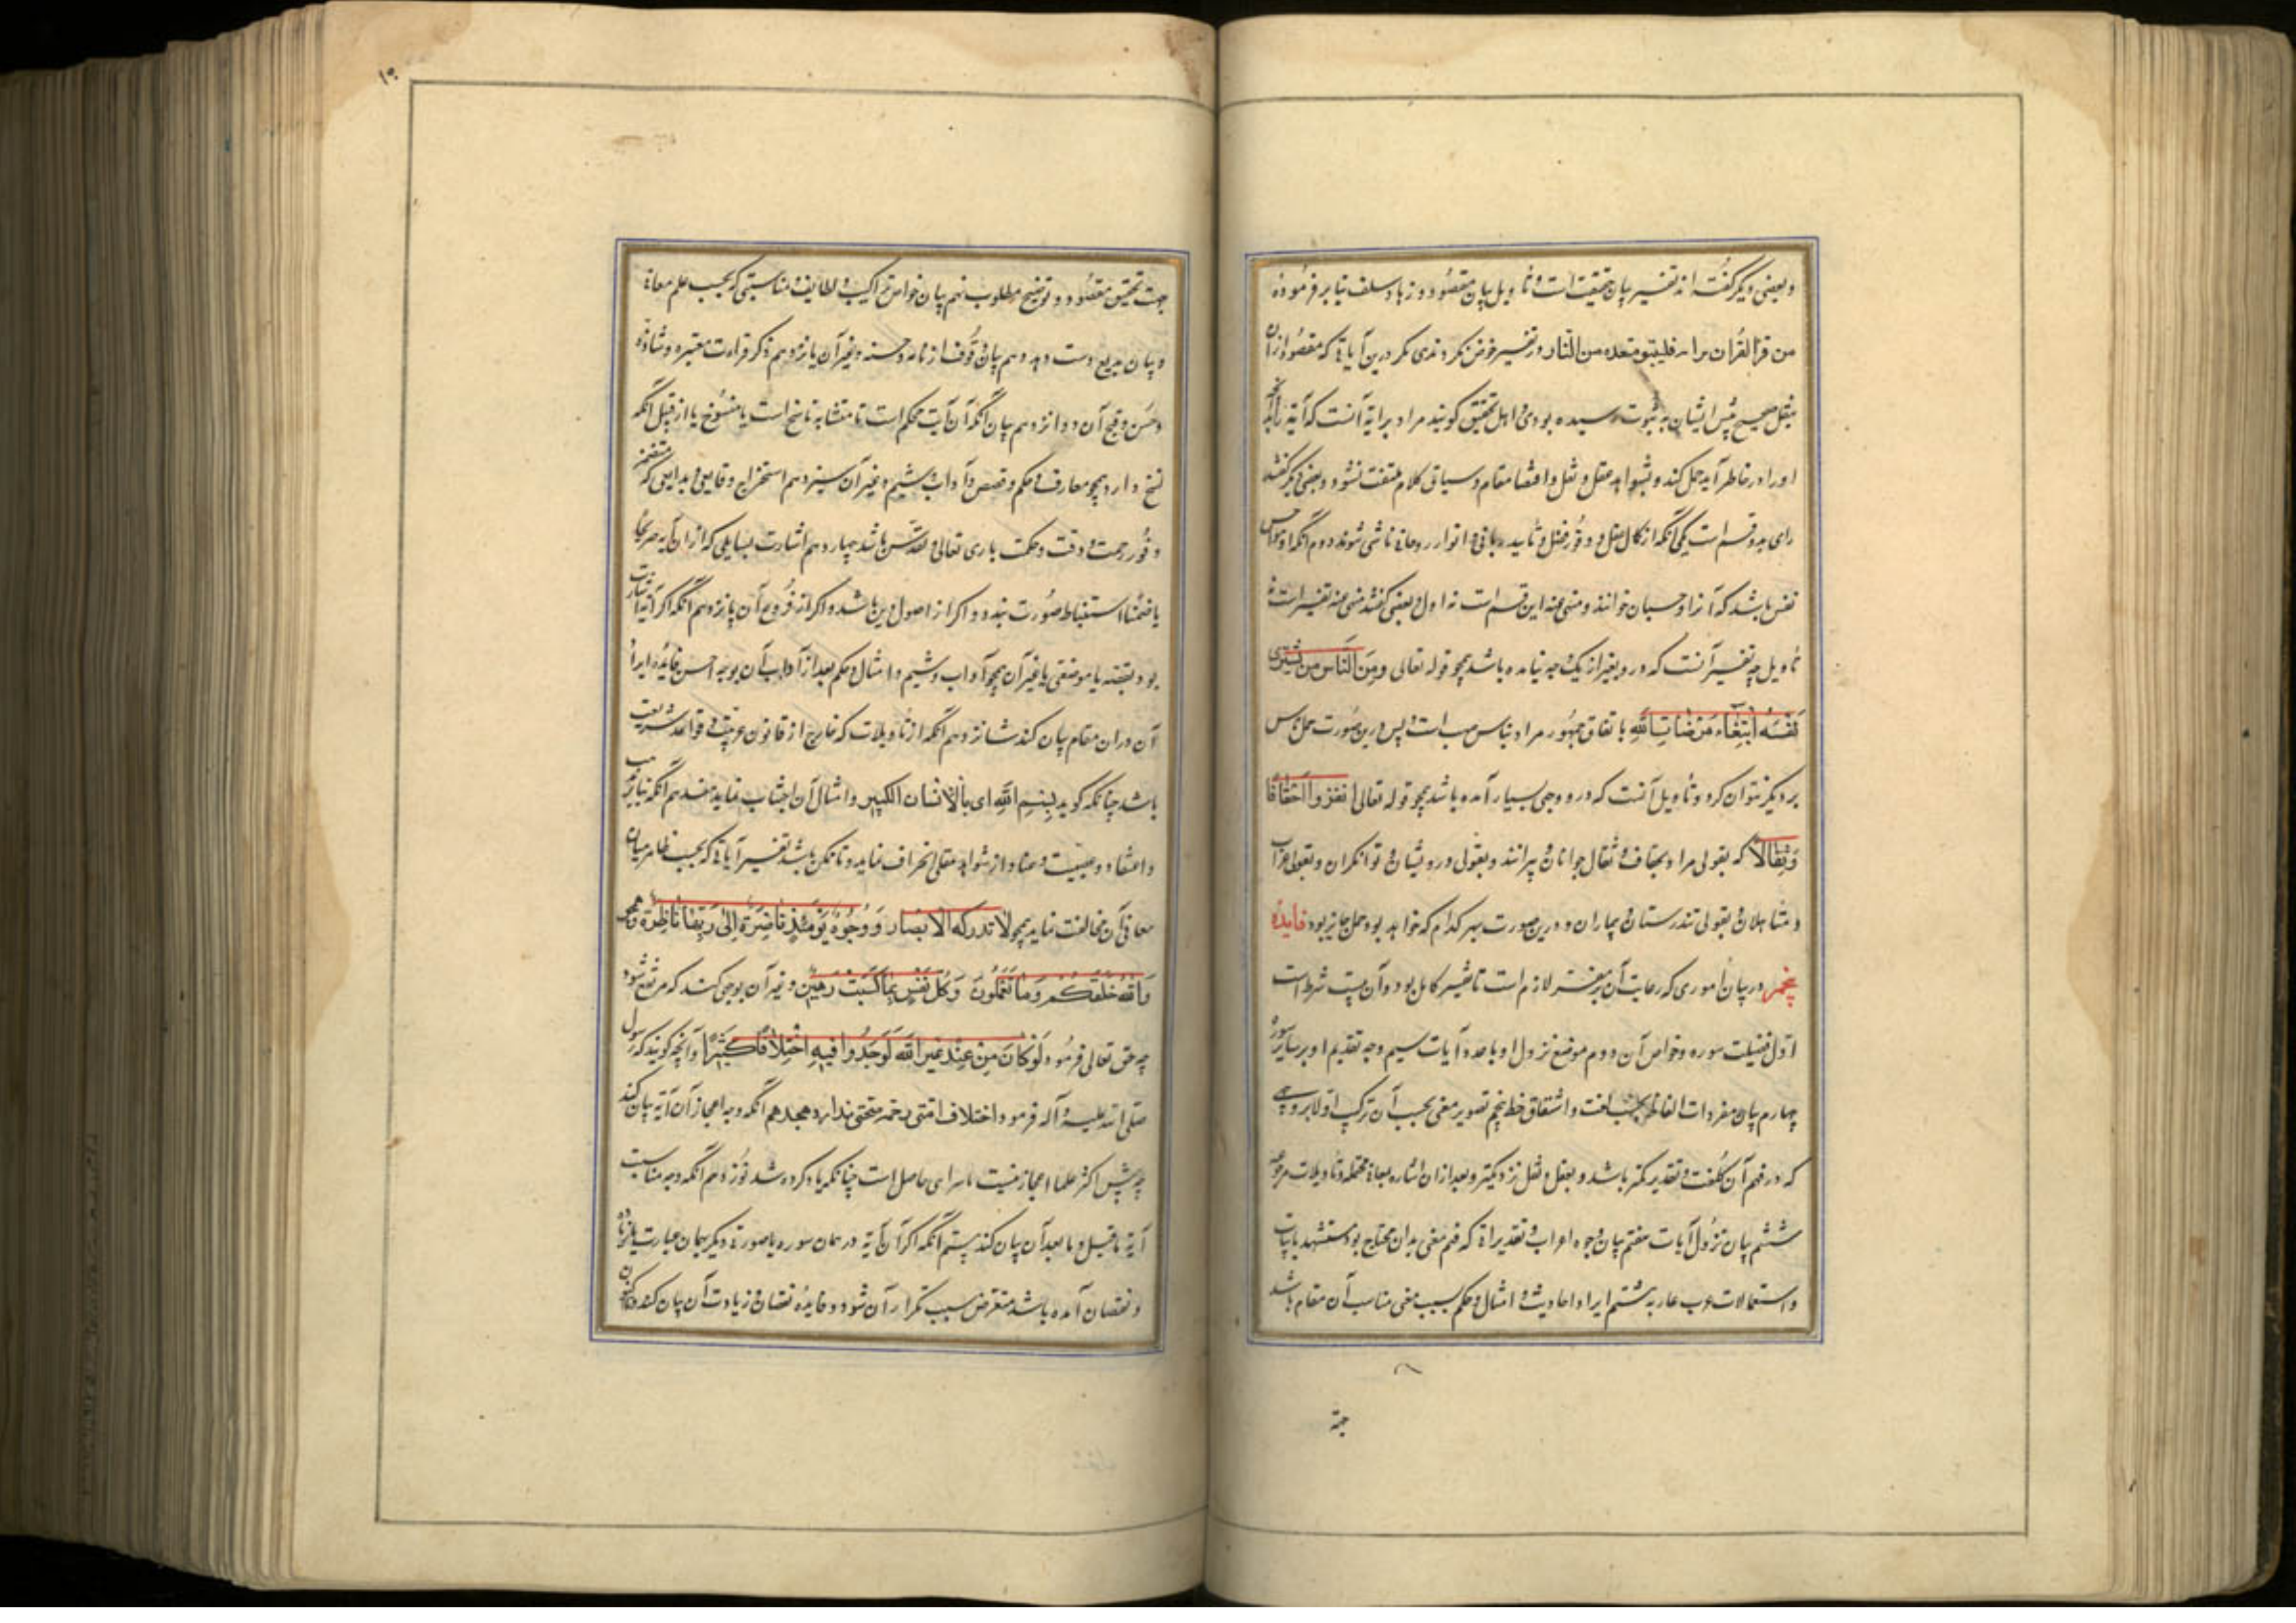 و بعضی دیگر گفته‌اند تفسیر بیان حقیقت است و تأویل بیان مقصود و زهاد سلف بنابر فرموده
من فسر القرآن برایه فلیتبوء مقعده من النار در تفسیر خوض نکردندی مگر درین آیاتی که مقصود از آن
بنقل صحیح پیش ایشان به ثبوت رسیده بودی و اهل تحقیق گویند مراد برایه آنست که آیه را بر آنچه
او را در خاطر آید حمل کند و بشواهد عقل و نقل و اقتضا مقام و سیاق کلام ملتفت نشود و بعضی دیگر گفتند
رای بدو قسم است یکی آنکه از کمال عقل و وفور فضل و تأیید ربانی و انوار روحانی ناشی شود و دوم آنکه از هواجس
نفس باشد که آنرا و حسبان خوانند و منهی عنه این قسم است نه اول و بعضی گفتند منهی عنه تفسیر است نه
تأویل چه تفسیر آنست که درو بغیر از یک وجه نیامده باشد همچو قوله تعالی وَمِنَ النَّاسِ مَن يَشْرِي
نَفْسَهُ ابْتِغَاءَ مَرْضَاتِ اللَّهِ باتفاق جمهور مراد بناس صهیب است پس درین صورت حمل ناس
بر دیگر نتوان کرد و تأویل آنست که درو وجهی بسیار آمده باشد همچو قوله تعالی انْفِرُوا خِفَافًا
وَثِقَالًا که بقولی مراد بخفاف و ثقال جوانان و پیرانند و بقولی درویشان و توانگران و بقولی عزاب
و متأهلان و بقولی تندرستان و بیماران و درین صورت بهر کدام که خواهد بود حمل جایز بود فایده
پنجم در بیان اموری که رعایت آن بر مفسر لازم است تا تفسیر کامل بود و آن بیست شرط است
اول فضیلت سوره و خواص آن دوم موضع نزول او با عدد آیات سیم وجه تقدیم او بر سایر سور
چهارم بیان مفردات الفاظ بحسب لغت و اشتقاق خط پنجم تصویر معنی بحسب آن ترکیب اولا بر وجهی
که در فهم آن کلفت و تقدیر کمتر باشد و بعقل و نقل نزدیکتر و بعد از آن اشاره بمعانی محتمله و تأویلات مرجوحه
ششم بیان نزول آیات هفتم بیان وجوه اعراب و تقدیراتی که فهم معنی بدان محتاج بود مستشهد بابیات
و استعمالات عرب عاربه هشتم ایراد احادیث و امثال و حکم بسبب معنی مناسب آن مقام باشد
جهة
۱۰
جهت تحقیق مقصود و توضیح مطلوب نهم بیان خواص تراکیب و لطایف و مناسبتی که بحسب علم معانی
و بیان و بدیع دست دهد دهم بیان وقوف از تامه و حسنه و غیر آن یازدهم ذکر قراءت معتبره و شاذه
و حسن و قبح آن دوازدهم بیان آنکه آن آیت محکم است تا متشابه ناسخ است یا منسوخ یا از قبیل آنکه
نسخ دارد همچو معارف و حکم و قصص و آداب و شیم و غیر آن سیزدهم استخراج وقایعی و بدایعی که متضمن
وفور رحمت و دقت و حکمت باری تعالی و تقدس باشد چهاردهم اشارت بمسایلی که از آن آیه صریحا
یا ضمنا استنباط صورت بندد و اگر از اصول دین باشد و اگر از فروع آن پانزدهم آنکه اگر آیه اشارت
بود بقصه یا موعظتی یا غیر آن همچو آداب و شیم و امثال و حکم بعد از آداب آن بوجه احسن فایده ایراد
آن در آن مقام بیان کند شانزدهم آنکه از تأویلات که خارج از قانون عربیت و قواعد شریعت
باشد چنانکه گوید بِسْمِ اللَّهِ ای بالانسان الکبیر و امثال آن اجتناب نماید هفدهم آنکه بنابر تعصب
و اعتقاد و عصبیت و عناد از شواهد عقلی انحراف ننماید و تا ممکن باشد تفسیر آیاتی که بحسب ظاهر میان
معانی آن مخالفت نماید همچو لَا تُدْرِكُهُ الْأَبْصَارُ وَ وُجُوهٌ يَوْمَئِذٍ نَاضِرَةٌ إِلَى رَبِّهَا نَاظِرَةٌ و همچو
وَاللَّهُ خَلَقَكُمْ وَمَا تَعْمَلُونَ وَ كُلُّ نَفْسٍ بِمَا كَسَبَتْ رَهِينَةٌ و غیر آن بوجهی کند که مرتفع شود
چه حق تعالی فرمود لَوْ كَانَ مِنْ عِنْدِ غَيْرِ اللَّهِ لَوَجَدُوا فِيهِ اخْتِلَافًا كَثِيرًا و آنچه گویند که رسول
صلی الله علیه و آله فرمود اختلاف امتی رحمة تحققی ندارد هجدهم آنکه وجه اعجاز آن آیه بیان کند
چه پیش اکثر علما اعجاز نسبت بهر آیتی حاصل است چنانکه یاد کرده شد نوزدهم آنکه وجه مناسبت
آیه ما قبل و ما بعد آن بیان کند بیستم آنکه اگر آن آیه در همان سوره یا سورتی دیگر بهمان عبارت یا بزیاده
و نقصان آمده باشد متعرض سبب تکرار آن شود و فایده نقصان و زیادت آن بیان کند و اکنون